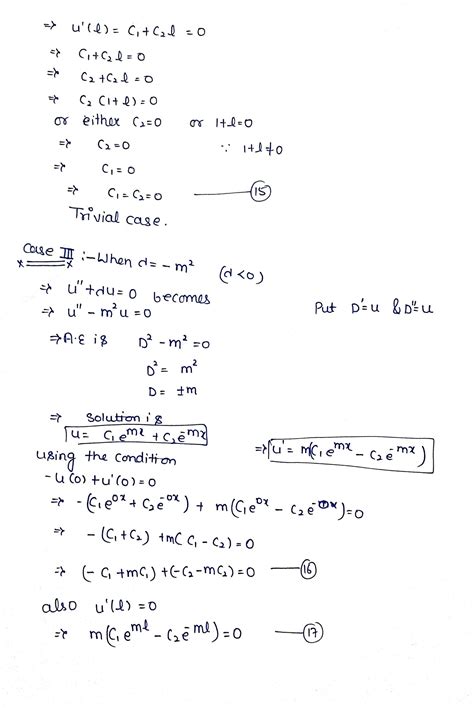 ⇒ u'(l) = C₁ + C₂l = 0
⇒ C₁ + C₂l = 0
⇒ C₂ + C₂l = 0
⇒ C₂ (1 + l) = 0
or either C₂=0 or 1+l=0
⇒ C₂ = 0 ∵ 1+l≠0
⇒ C₁ = 0
⇒ C₁ = C₂ = 0 — (15)
Trivial case.
Case III :- When d = -m² (d<0)
⇒ u'' + du = 0 becomes
⇒ u'' - m²u = 0 Put D'=u & D''=u
⇒ A.E is D² - m² = 0
D² = m²
D = ±m
⇒ Solution is
u = C₁e^{mx} + C₂e^{-mx}
⇒ u' = m(C₁e^{mx} - C₂e^{-mx})
using the condition
-u(0) + u'(0) = 0
⇒ -(C₁e^{0x} + C₂e^{-0x}) + m(C₁e^{0x} - C₂e^{-0x}) = 0
⇒ -(C₁+C₂) + m(C₁ - C₂) = 0
⇒ (-C₁ + mC₁) + (-C₂ - mC₂) = 0 — (16)
also u'(l) = 0
⇒ m(C₁e^{ml} - C₂e^{-ml}) = 0 — (17)